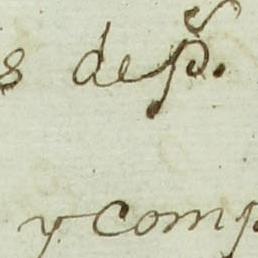 s de p.
y comp